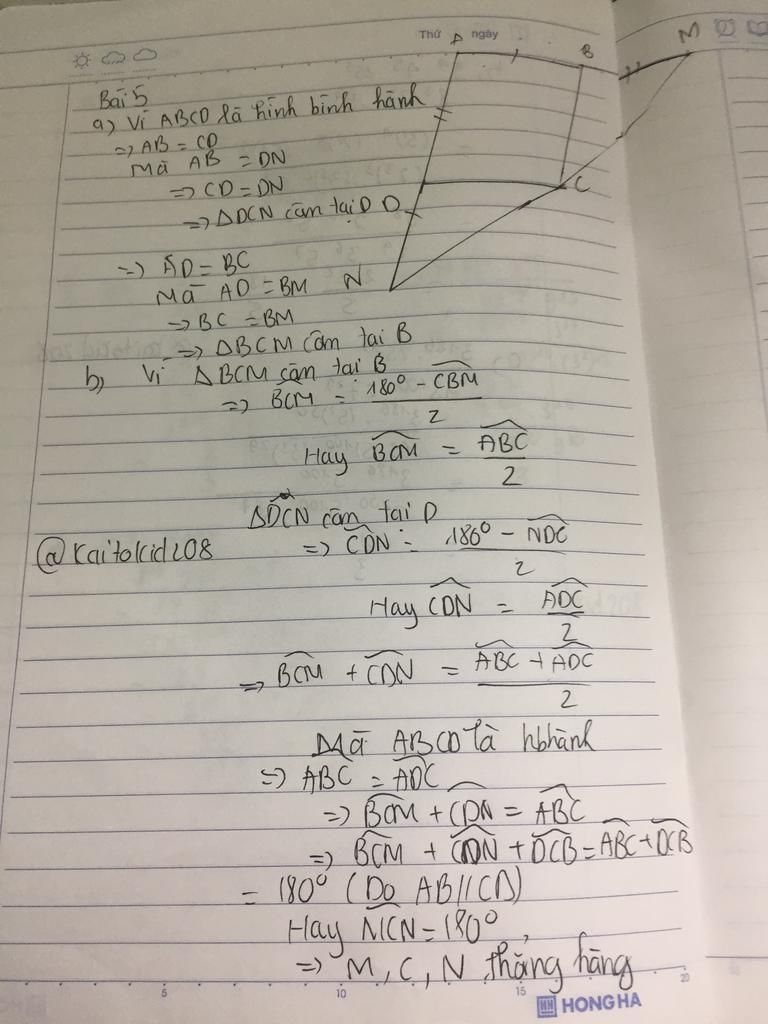 Thứ A ngày
B
M
Bài 5
a) Vì ABCD là hình bình hành
=> AB = CD
Mà AB = DN
=> CD = DN
=> ΔDCN cân tại D D
C
=> AD = BC
N
Mà AD = BM
=> BC = BM
=> ΔBCM cân tại B
b) Vì ΔBCM cân tại B
=> BCM = 180° - CBM / 2
Hay BCM = ABC / 2
ΔDCN cân tại D
@Kaitolcid208
=> CDN = 180° - NDC / 2
Hay CDN = ADC / 2
=> BCM + CDN = ABC + ADC / 2
Mà ABCD là hbhành
=> ABC = ADC
=> BCM + CDN = ABC
=> BCM + CDN + DCB = ABC + DCB
= 180° (Do AB // CD)
Hay MCN = 180°,
=> M, C, N thẳng hàng
5 10 15 20
HH HONG HA